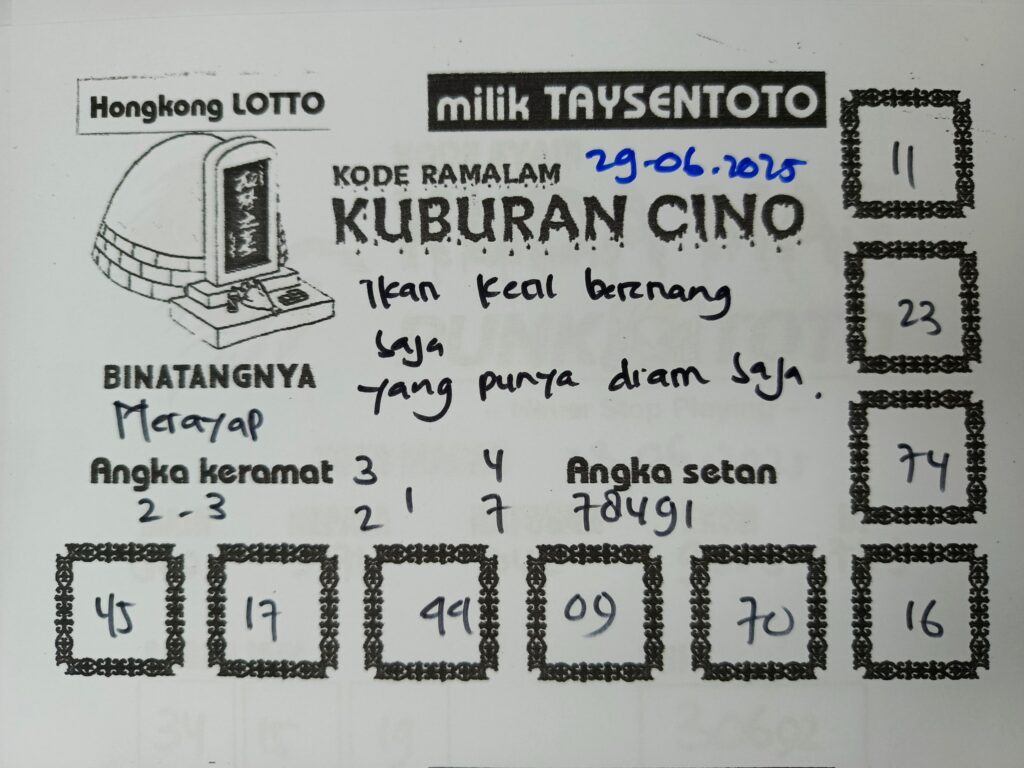 Hongkong LOTTO
milik TAYSENTOTO
KODE RAMALAM 29-06-2025
KUBURAN CINO
Ikan kecil berenang
saja
yang punya diam saja.
BINATANGNYA
Merayap
Angka keramat 3 4 Angka setan
2 - 3 2 1 7 78491
11
23
74
45 17 99 09 70 16